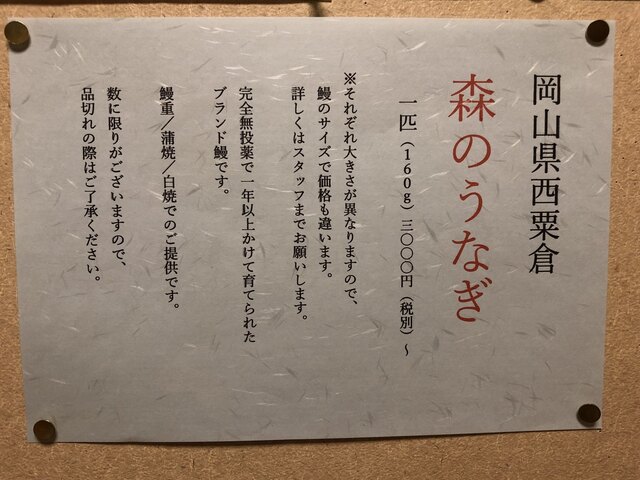 岡山県西粟倉
森のうなぎ
一匹（160g）三〇〇〇円（税別）～
※それぞれ大きさが異なりますので、
鰻のサイズで価格も違います。
詳しくはスタッフまでお願いします。
完全無投薬で一年以上かけて育てられた
ブランド鰻です。
鰻重／蒲焼／白焼でのご提供です。
数に限りがございますので、
品切れの際はご了承ください。